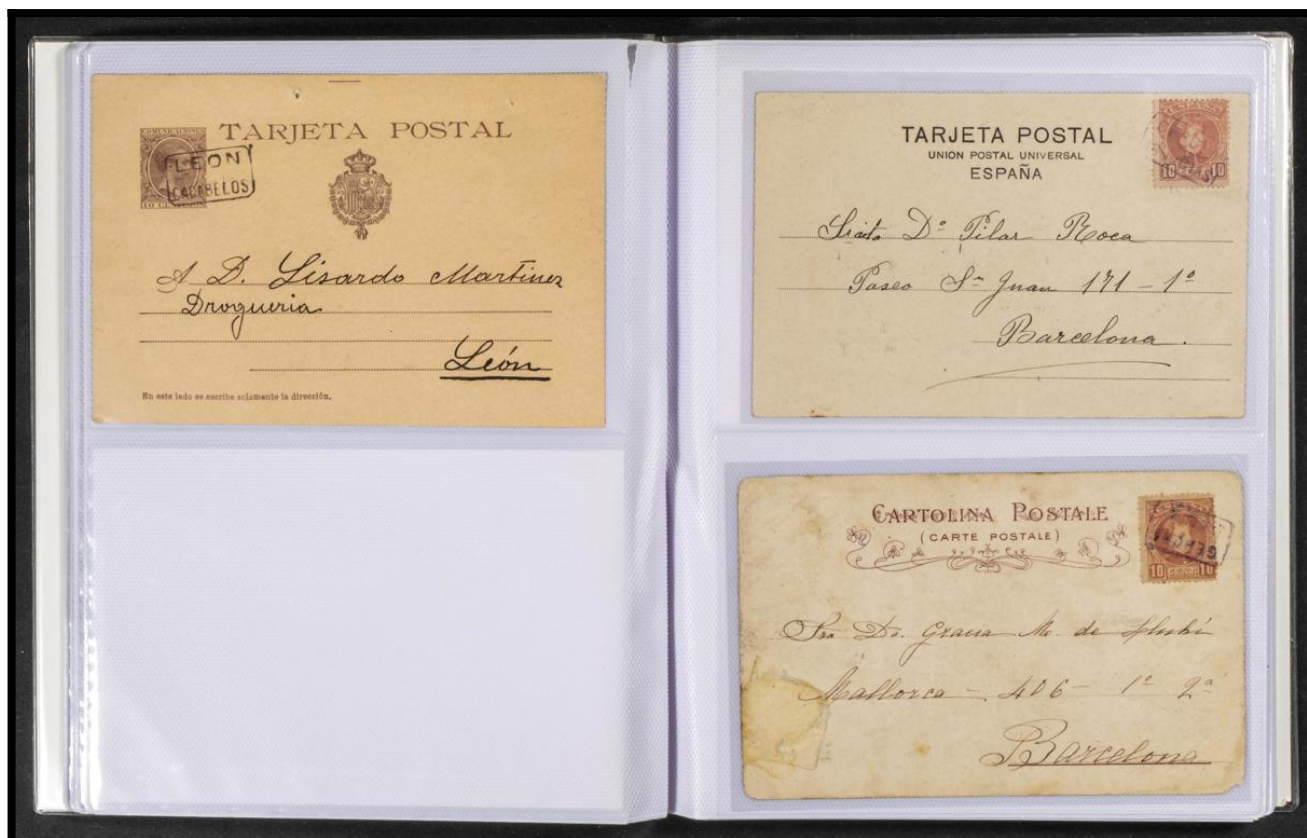 COMUNICACIONES
TARJETA POSTAL
LEON
CACABELOS
A D. Lisardo Martinez
Drogueria
León
En este lado se escribe solamente la dirección.
TARJETA POSTAL
UNION POSTAL UNIVERSAL
ESPAÑA
10 10
D.ª Pilar Roca
Paseo S.n Juan 171 - 1º
Barcelona.
CARTOLINA POSTALE
(CARTE POSTALE)
10 10
Sra Da. M. de
Mallorca - 406 - 1º 2ª
Barcelona